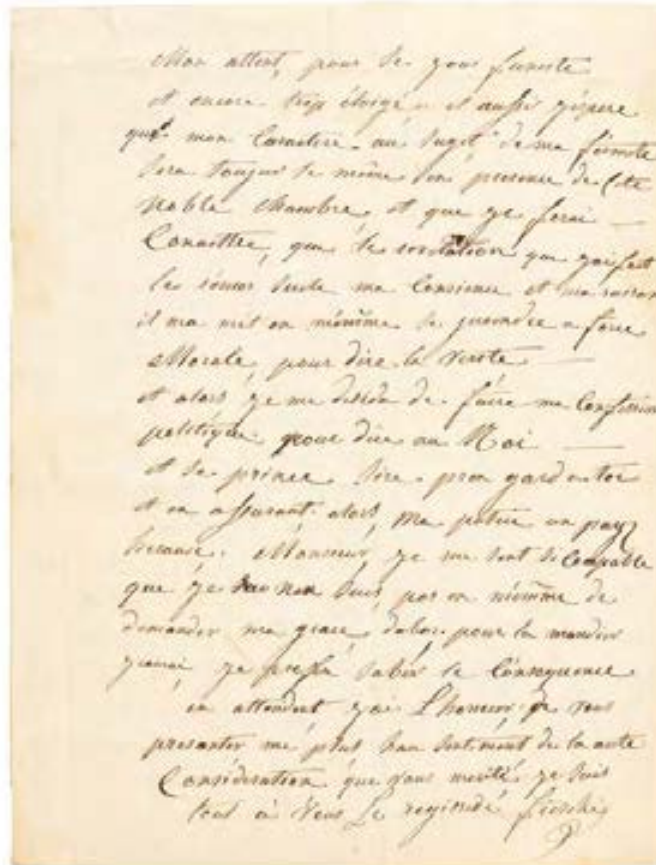 Mon attent, pour se jour funeste
et encore trop éloigé et aussi j'espere
que mon Caractere au suget de ma fermete
sera toujur le même en presence de cete
noble chambre, et que je ferai
Conaittre, que le
ma Consience et ma raison
il ma met en mêmme de force
Morale, pour dire la verite
et alors je me deside de faire ma Confession
politique pour dire au Roi
et se prince Sire
et en assurant alors, ma patrie un pays
Monsieur, je me sent si Coupable
que je suis pas en mêmme de
demander ma grace pour la
je prefere subir le Consequence
en attendent j'ai L'honeur de vous
presanter me plus hau sentiment de la aute
Considération que vous merité je suis
tout à Vous Le regiside fieschi